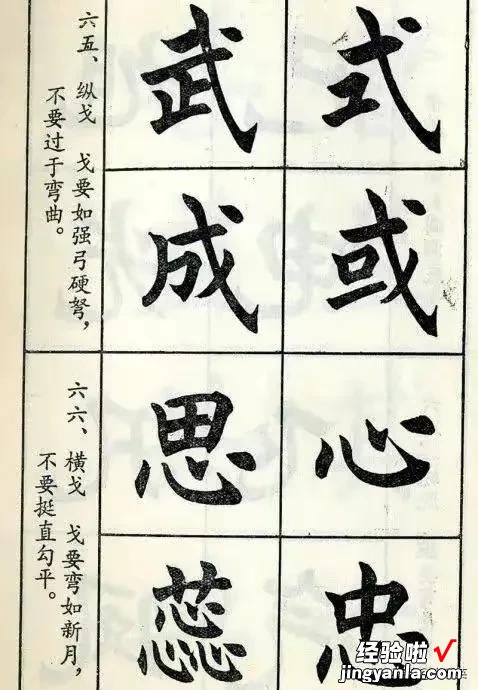 六五、纵戈 戈要如强弓硬弩，
不要过于弯曲。
式
武
或
成
六六、横戈 戈要弯如新月，
不要挺直勾平。
心
思
忠
蕊
经验啦√
jingyanla.com